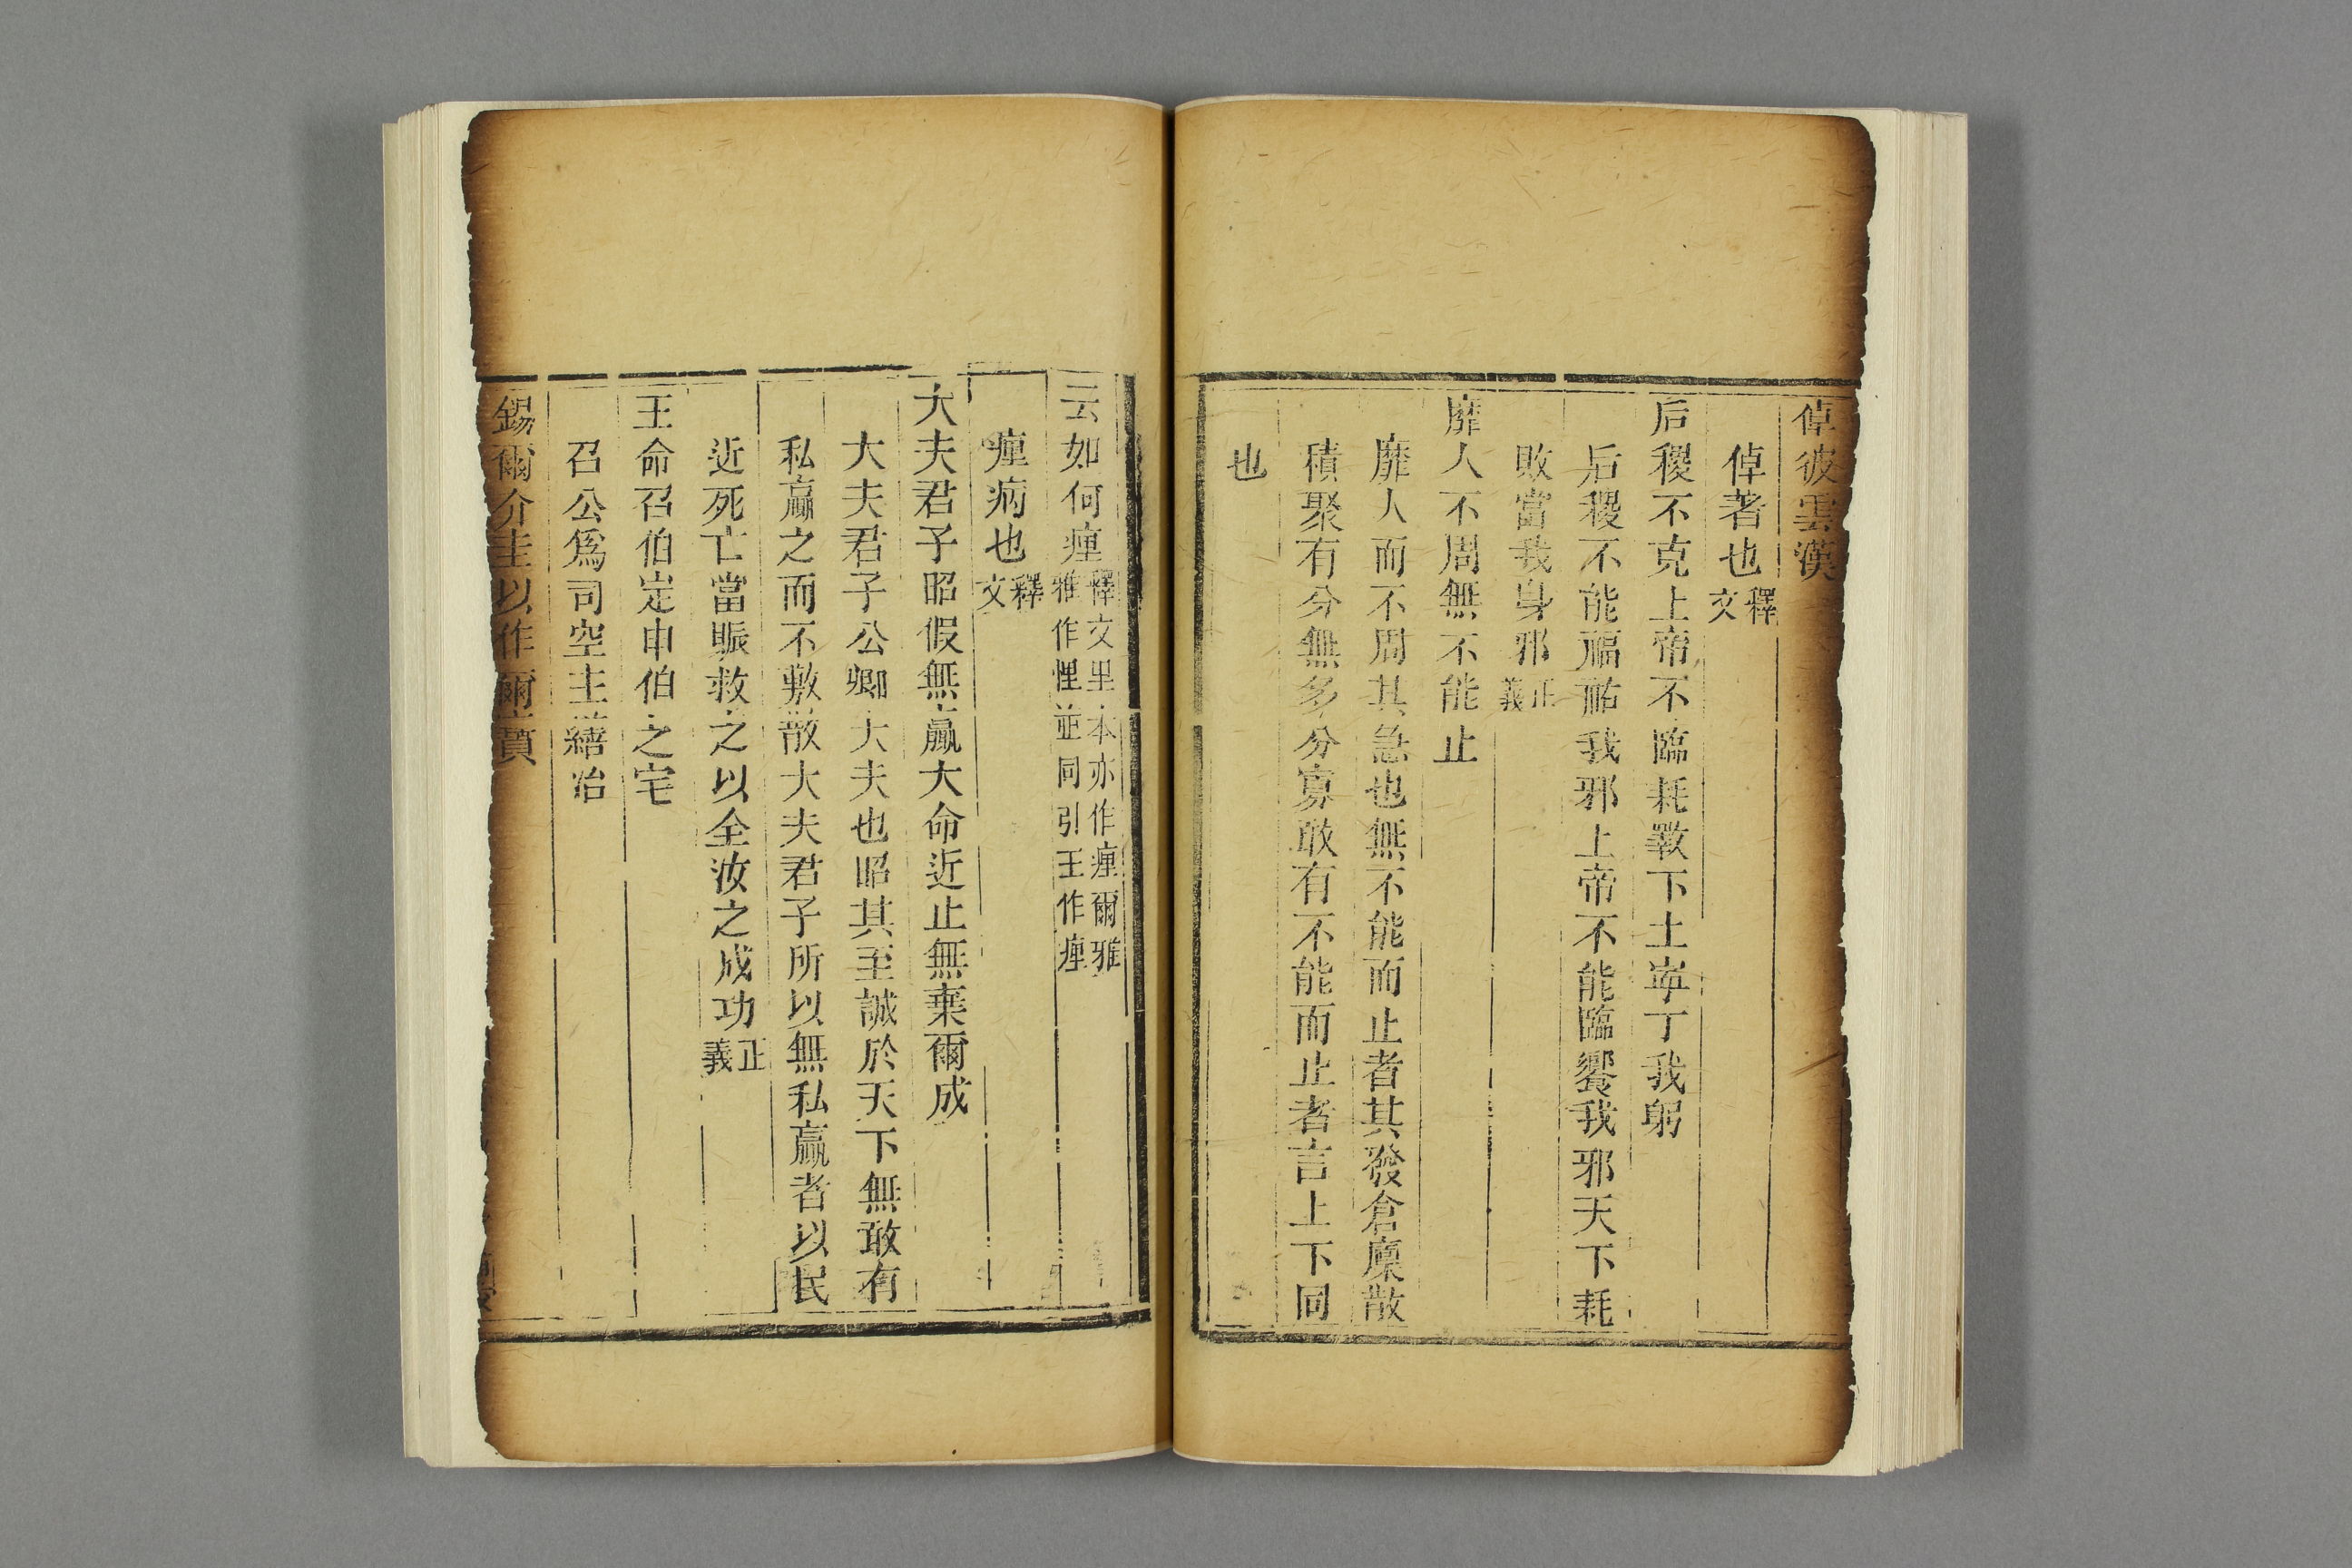 倬彼雲漢
倬著也釋文
后稷不克上帝不臨耗斁下土寧丁我躬
后稷不能福祐我邪上帝不能臨饗我邪天下耗
敗當我身邪正義
靡人不周無不能止
靡人而不周其急也無不能而止者其發倉廩散
積聚有分無多分寡敢有不能而止者言上下同
也
云如何瘇釋文里本亦作瘇爾雅
雅作悝並同引王作瘇
瘇病也釋文
大夫君子昭假無贏大命近止無棄爾成
大夫君子公卿大夫也昭其至誠於天下無敢有
私贏之而不敷散大夫君子所以無私贏者以民
近死亡當賑救之以全汝之成功正義
王命召伯定申伯之宅
召公爲司空主繕治
錫爾介圭以作爾寶